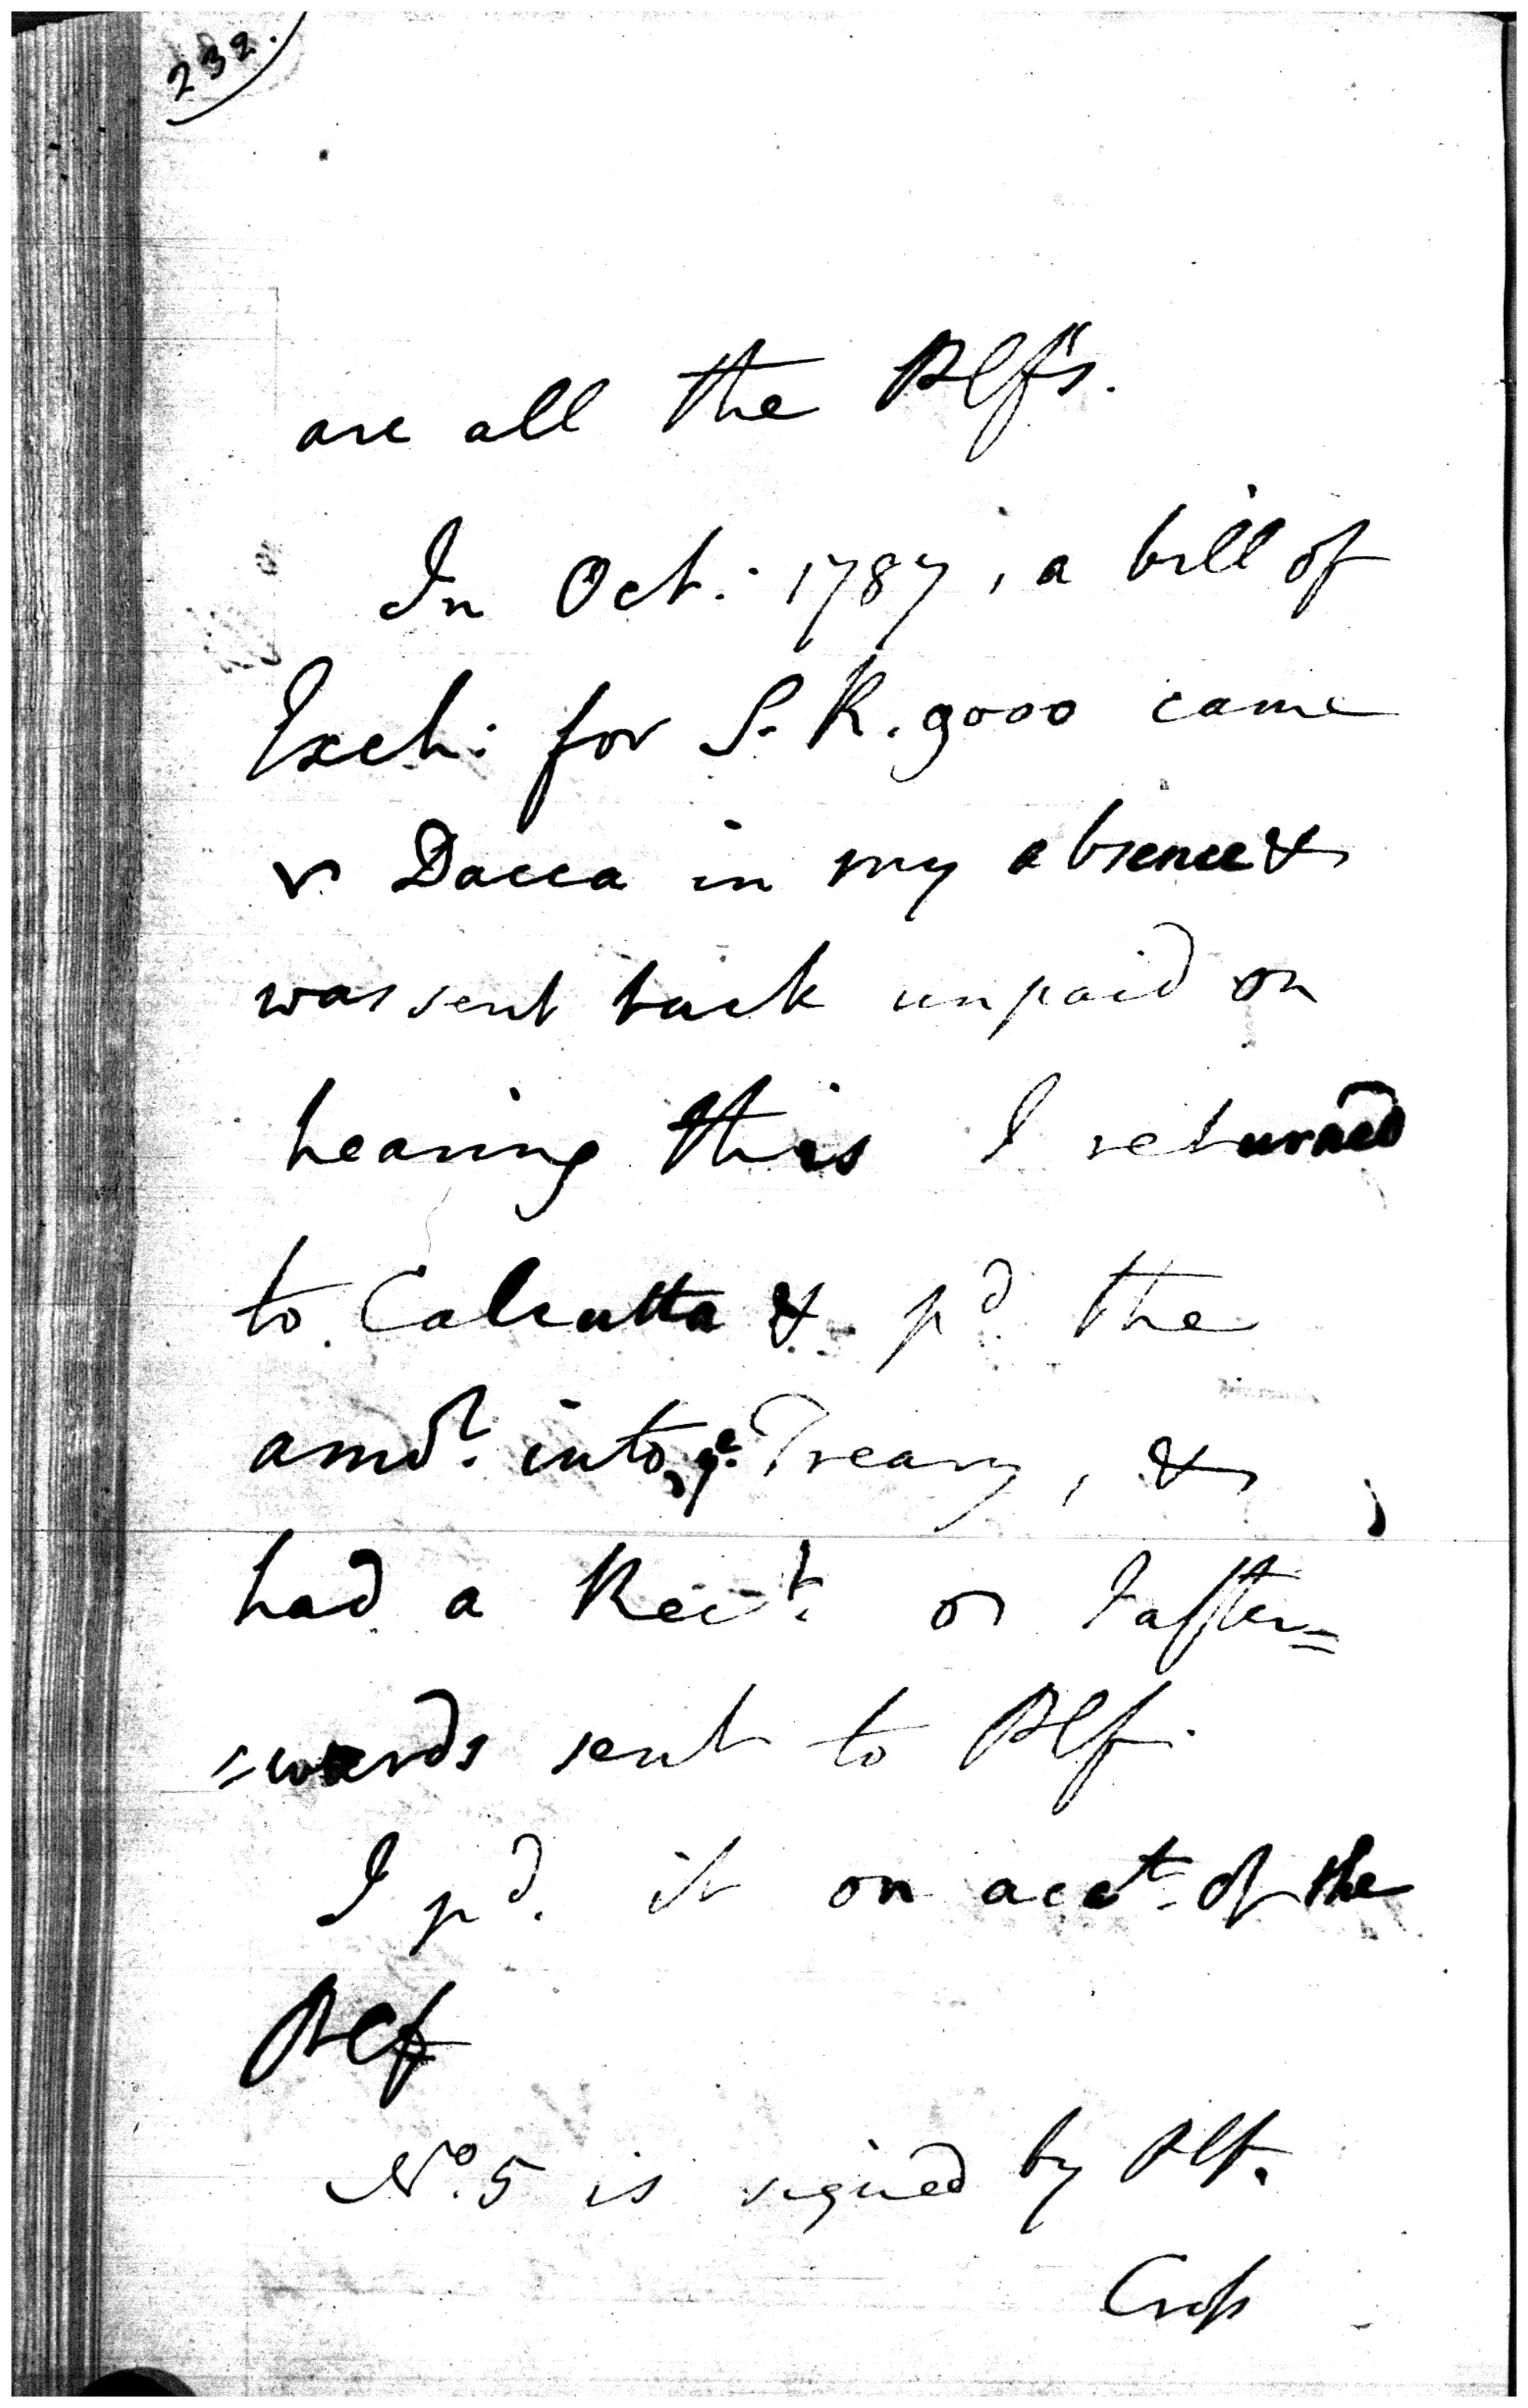 232.
are all the Plf's.
In Oct: 1787, a bill of
Exch: for S. R. 9000 came
Dacca in my absence &
was sent back unpaid on
hearing this I returned
to Calcutta & pd. the
amot. into ye Treary, &
had a Rect. I after=
=wards sent to Plf.
I pd. it on acct. of the
Plf
No. 5 is signed by Plf.
Cross